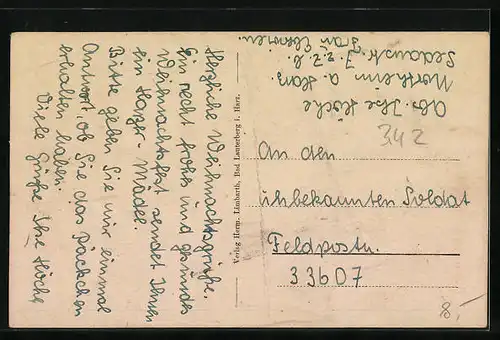 Herzliche Weihnachtsgrüße.
Ein recht frohes und gesundes
Weihnachtsfest sendet Ihnen
ein Harzer-Mädel.
Bitte geben Sie mir einmal
Antwort, ob Sie das Päckchen
erhalten haben.
Viele Grüße Ihre Höche
Verlag Herm. Limbarth, Bad Lauterberg i. Harz.
Abs. Ilse Höche
Northeim a. Harz
Sedanstr. 7. z. Z. b.
Frau
342
An den
unbekannten Soldat
Feldpostn.
33607
8,-